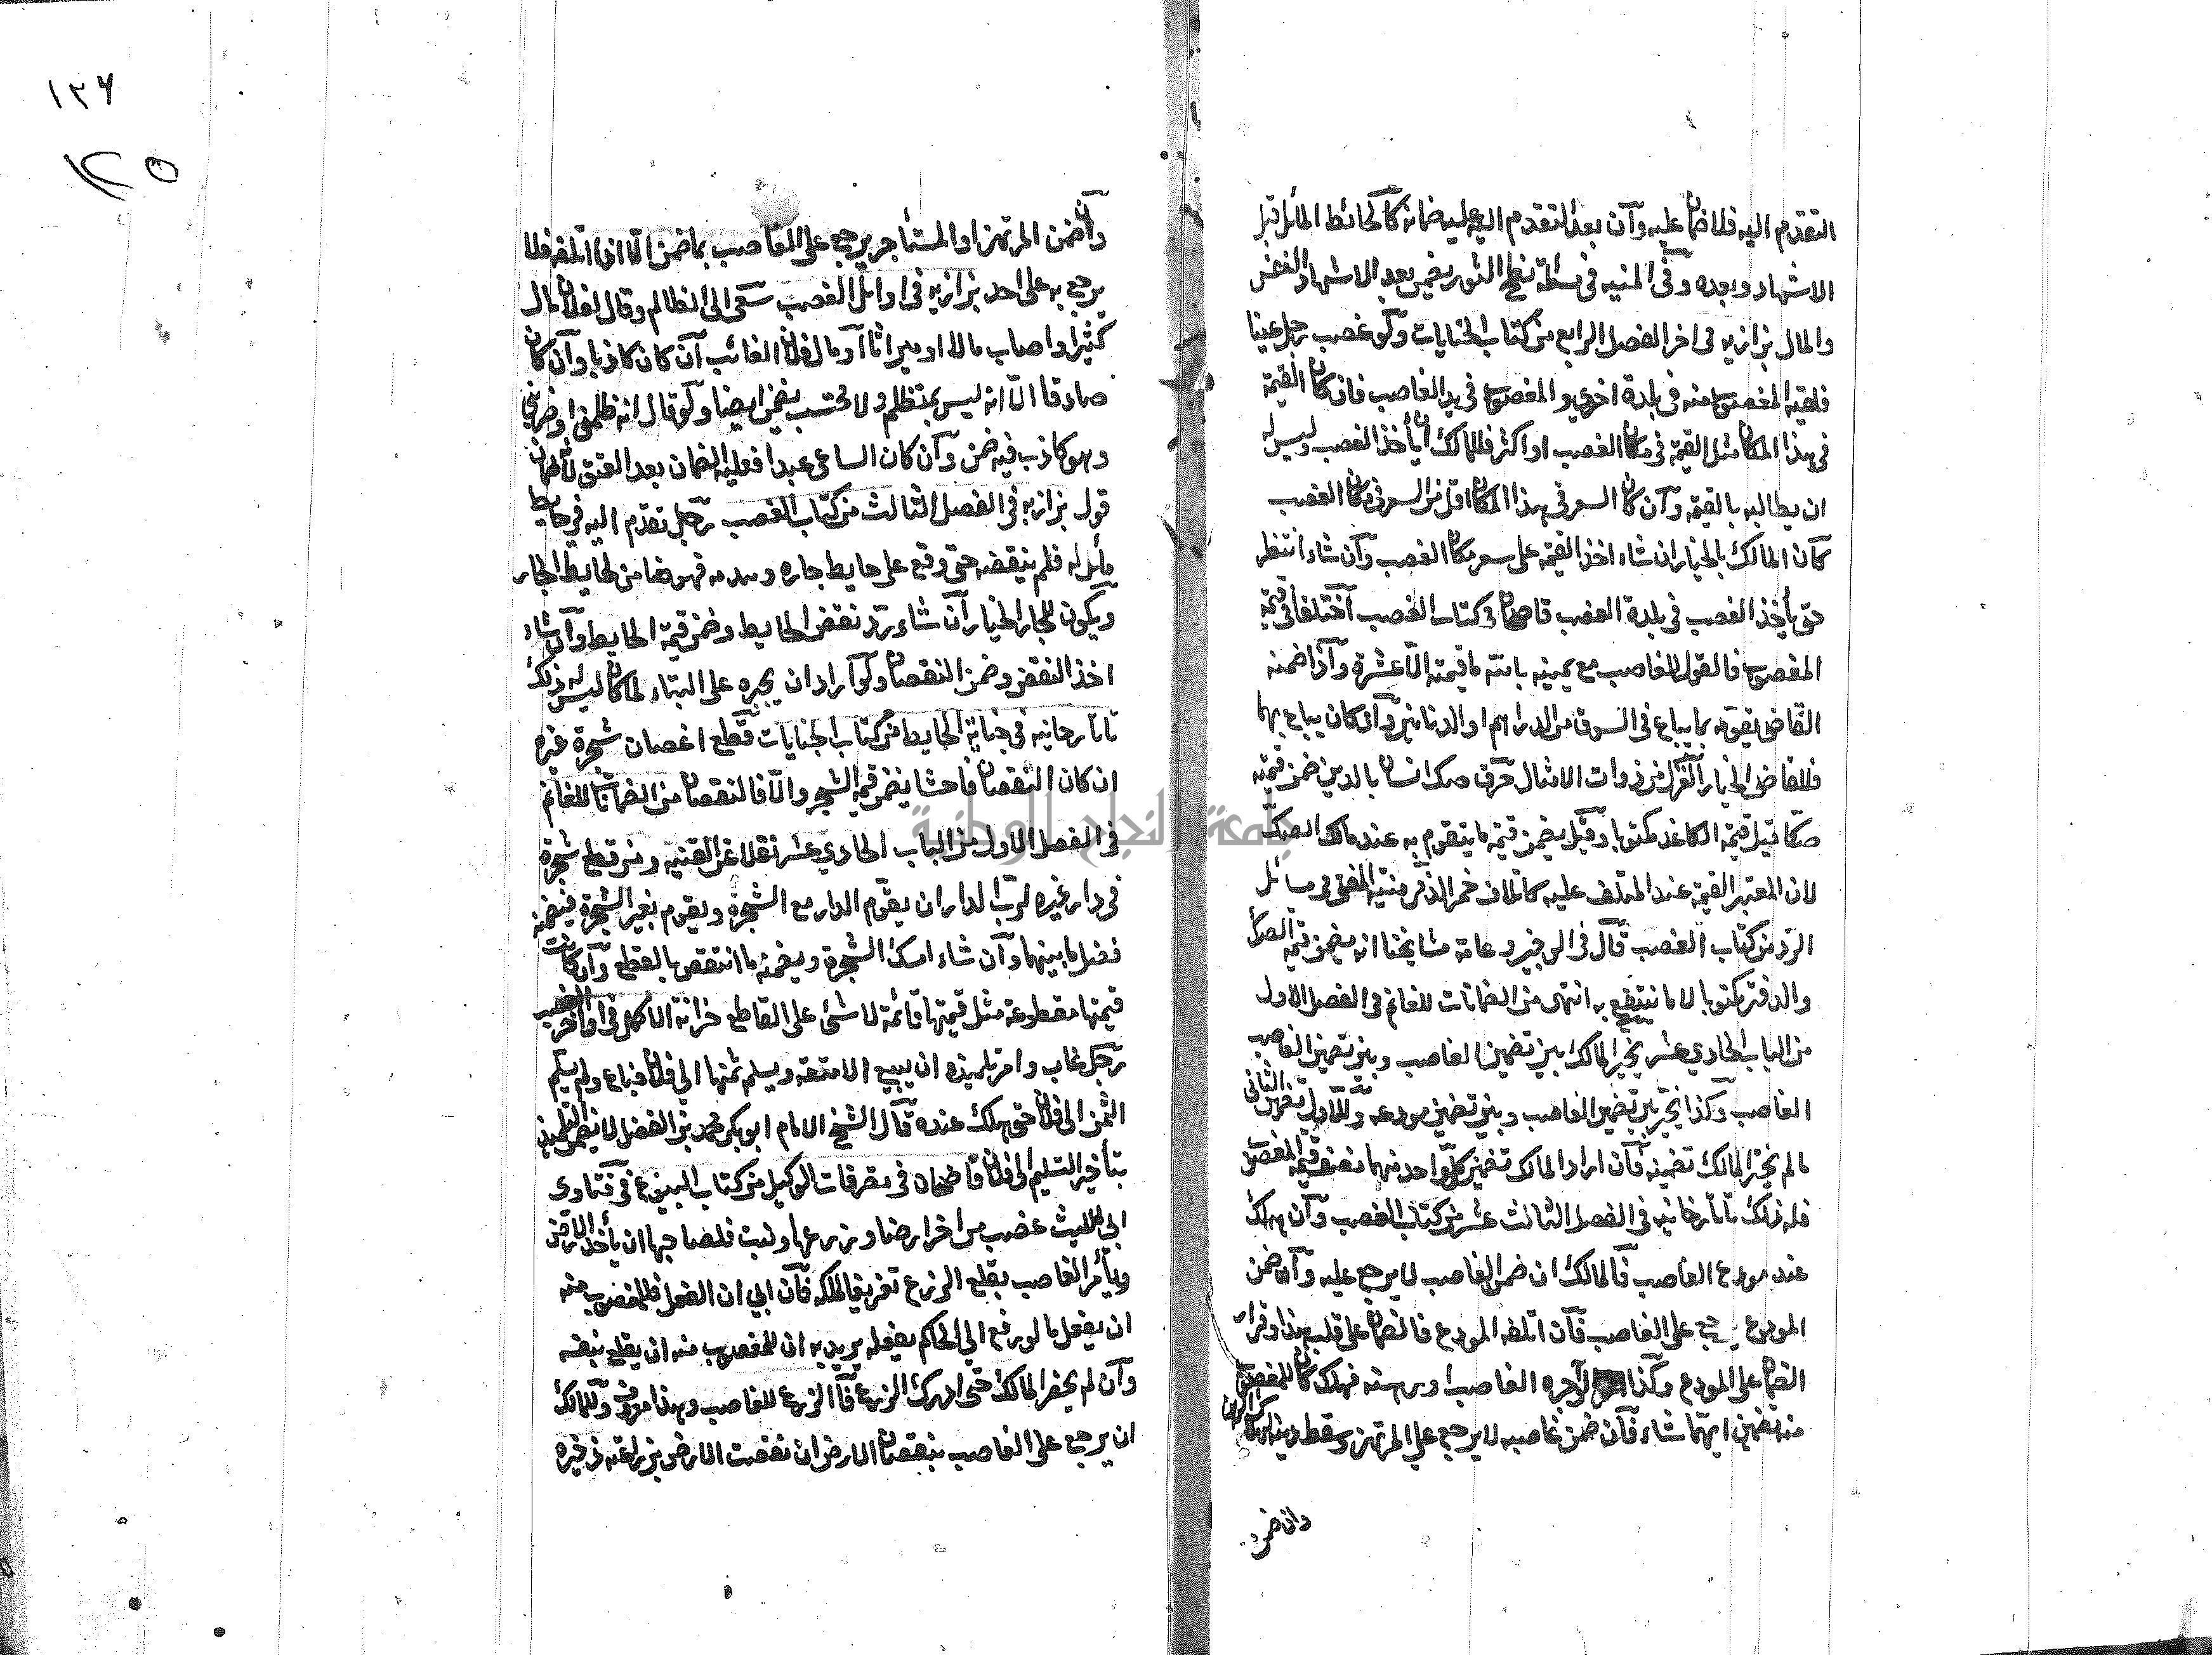 التقدم اليه فلا ضمان عليه وآن بعد التقدم اليه عليه ضمانه كالحائط المائل قبل
الاشهاد وبعده وفى المنيه فى مسئلة نطح الثور يضمن بعد الاشهاد النفس
والمال بزازيه فى اخر الفصل الرابع من كتاب الجنايات ولو غصب رجل عينا
فلقيه المغصوب منه فى بلدة اخري والمغصوب فى يد الغاصب فان كان القيمة
فى هذا المكان مثل القيمة فى مكان الغصب او اكثر فللمالك ان يأخذ الغصب وليس له
ان يطالبه بالقيمة وآن كان السعر فى هذا المكان اقل من السعر فى مكان الغصب
كان المالك بالخيار ان شاء اخذ القيمة على سعر مكان الغصب وآن شاء انتظر
حتى يأخذ الغصب فى بلدة الغصب قاضخان فى كتاب الغصب آختلفا فى قيمة
المغصوب فالقول للغاصب مع يمينه بالله ما قيمته الا عشرة وآذا ضمنه
القاضى يقومه بما يباع فى السوق من الدراهم او الدنانير وآن كان يباع بهما
فللقاضى الخيار الغزل من ذوات الامثال حرق صك انسان بالدين ضمن قيمته
صكا قيل قيمة الكاغد مكتوبا وقيل يضمن قيمة ما يتقوم به عند مالك الصك
لان المعتبر القيمة عند المتلف عليه كاتلاف خمر الذمى منية المفتى فى مسائل
الرد من كتاب الغصب قال فى الوجيز وعامة مشايخنا انه يضمن قيمة الصك
والدفتر مكتوبا لا ما ينتفع به انتهى من الضمانات للغانم فى الفصل الاول
من الباب الحادي عشر يخير المالك بين تضمين الغاصب وبين تضمين الغاصب
الغاصب وكذا يخير بين تضمين الغاصب وبين تضمين مودعه وللاول تضمين الثانى
ما لم يختر المالك تضمينه فآن اراد المالك تضمين كل واحد منهما نصف قيمة المغصوب
فله ذلك تاتارخانيه فى الفصل الثالث عشر من كتاب الغصب وآن هلك
عند مودع الغاصب فالمالك ان ضمن الغاصب لا يرجع عليه وآن ضمن
المودع يرجع على الغاصب فآن اتلفه المودع فالضمان على قلب هذا وقرار
الضمان على المودع وكذا لو آجره الغاصب او رهنه فهلك كان للمغصوب
منه تضمين ايهما شاء فآن ضمن غاصبه لا يرجع على المرتهن وسقط دينه
وان ضمن
١٣٤
٢٥
وآن ضمن المرتهن او المستأجر يرجع على الغاصب بما ضمن الا اذا اتلفه فلا
يرجع به على احد بزازيه فى اوائل الغصب سعى الى الظالم وقال لفلان مال
كثير او اصاب مالا او ميراثا آو مال فلان الغائب آن كان كاذبا وآن كان
صادقا الا انه ليس بمتظلم ولا محتسب يضمن ايضا ولو قال انه ظلمنى او ضربنى
وهو كاذب فيه ضمن وآن كان الساعى عبدا فعليه الضمان بعد العتق لانه ضمان
قول بزازيه فى الفصل الثالث من كتاب الغصب رجل تقدم اليه فى حايط
مائل له فلم ينقضه حتى وقع على حايط جاره وهدمه فهو ضامن لحايط الجار
ويكون للجار الخيار آن شاء رد نقض الحايط وضمن قيمة الحايط وآن شاء
اخذ النقض وضمن النقصان ولو آراد ان يجبره على البناء لما كان ليس له ذلك
تاتارخانيه فى جناية الحايط من كتاب الجنايات قطع اغصان شجرة غيره
ان كان النقصان فاحشا يضمن قيمة الشجر والا فالنقصان من الضمانات للغانم
فى الفصل الاول من الباب الحادي عشر نقلا عن القنيه ومن قطع شجرة
فى دار غيره لرب الدار ان يقوم الدار مع الشجرة ويقوم بغير الشجرة فيضمنه
فضل ما بينهما وآن شاء امسك الشجرة ويضمنه ما انتقص بالقطع وآن كانت
قيمتها مقطوعة مثل قيمتها قائمة لا شئ على القاطع خزانة الاكمل فى اواخر الغصب
رجل غاب وامر تلميذه ان يبيع الامتعة ويسلم ثمنها الى فلان فباع ولم يسلم
الثمن الى فلان حتى هلك عنده قال الشيخ الامام ابو بكر محمد بن الفضل لا يضمن التلميذ
بتأخير التسليم الى فلان قاضخان فى تصرفات الوكيل من كتاب البيوع فى فتاوى
ابى الليث غصب من اخر ارضا وزرعها ونبت فلصاحبها ان يأخذ الارض
ويأمر الغاصب بقلع الزرع تفريغا لملكه فآن ابي ان يفعل فللمغصوب منه
ان يفعل ما لو رفع الي الحاكم يفعله يريد به ان للمغصوب منه ان يقلع بنفسه
وآن لم يحضر المالك حتى ادرك الزرع فالزرع للغاصب وهذا معروف وللمالك
ان يرجع على الغاصب بنقصان الارض ان نقصت الارض بزراعته ذخيره
جامعة النجاح الوطنية